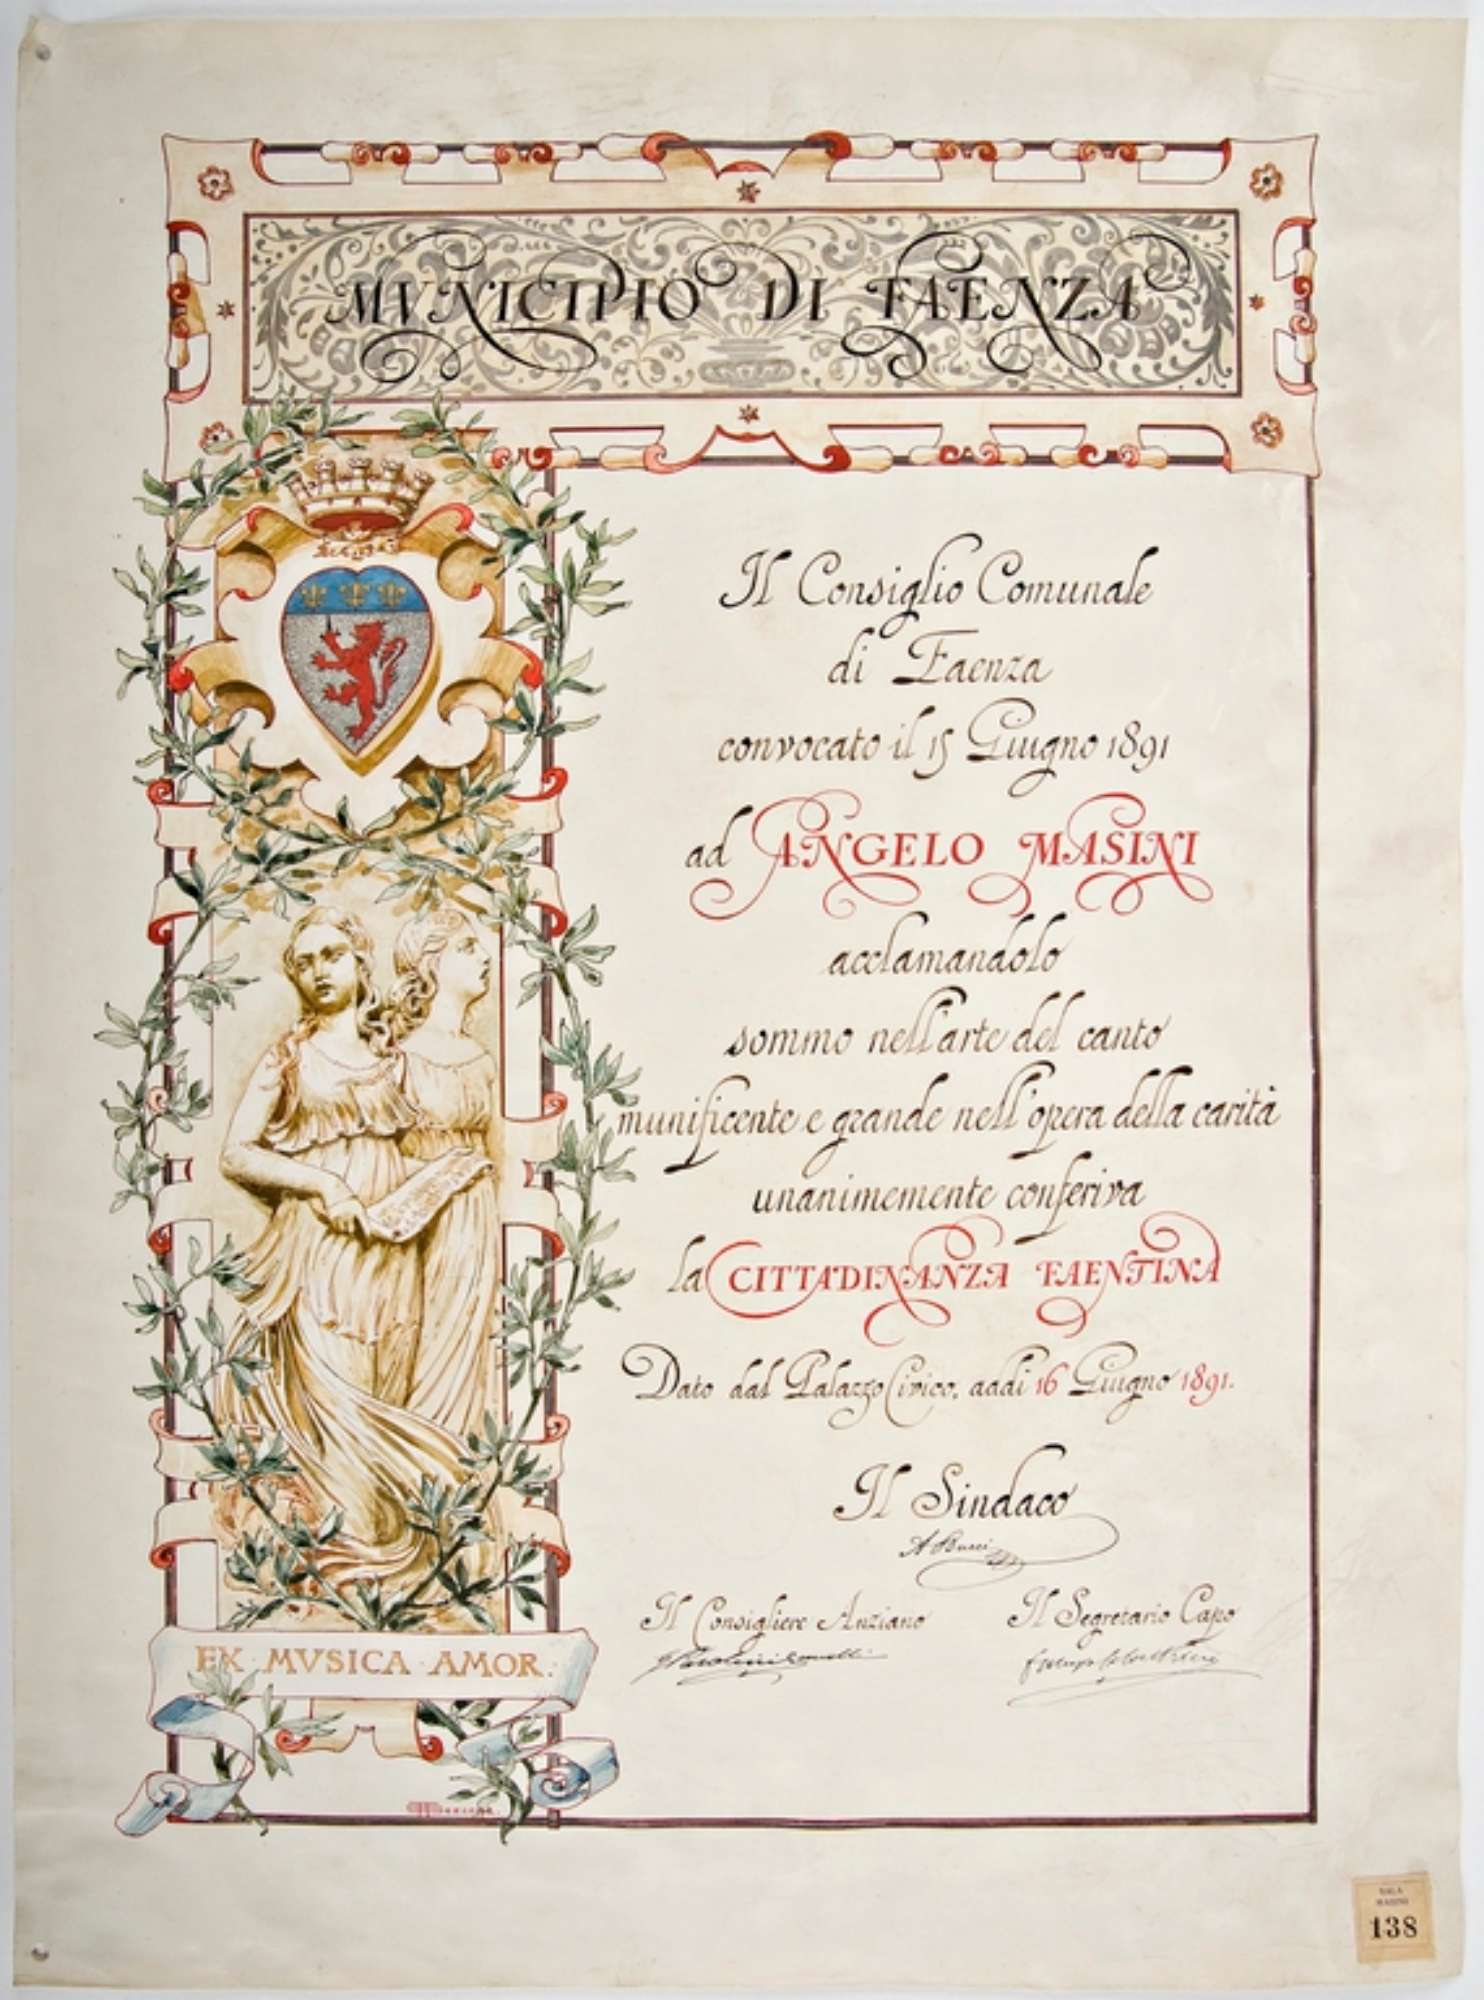 MVNICIPIO DI FAENZA
Il Consiglio Comunale
di Faenza
convocato il 15 Giugno 1891
ad ANGELO MASINI
acclamandolo
sommo nell'arte del canto
munificente e grande nell'opera della carità
unanimemente conferiva
la CITTADINANZA FAENTINA
Dato dal Palazzo Civico, addì 16 Giugno 1891.
Il Sindaco
A Bucci
Il Consigliere Anziano
Il Segretario Capo
EX · MVSICA · AMOR ·
SALA
MASINI
138